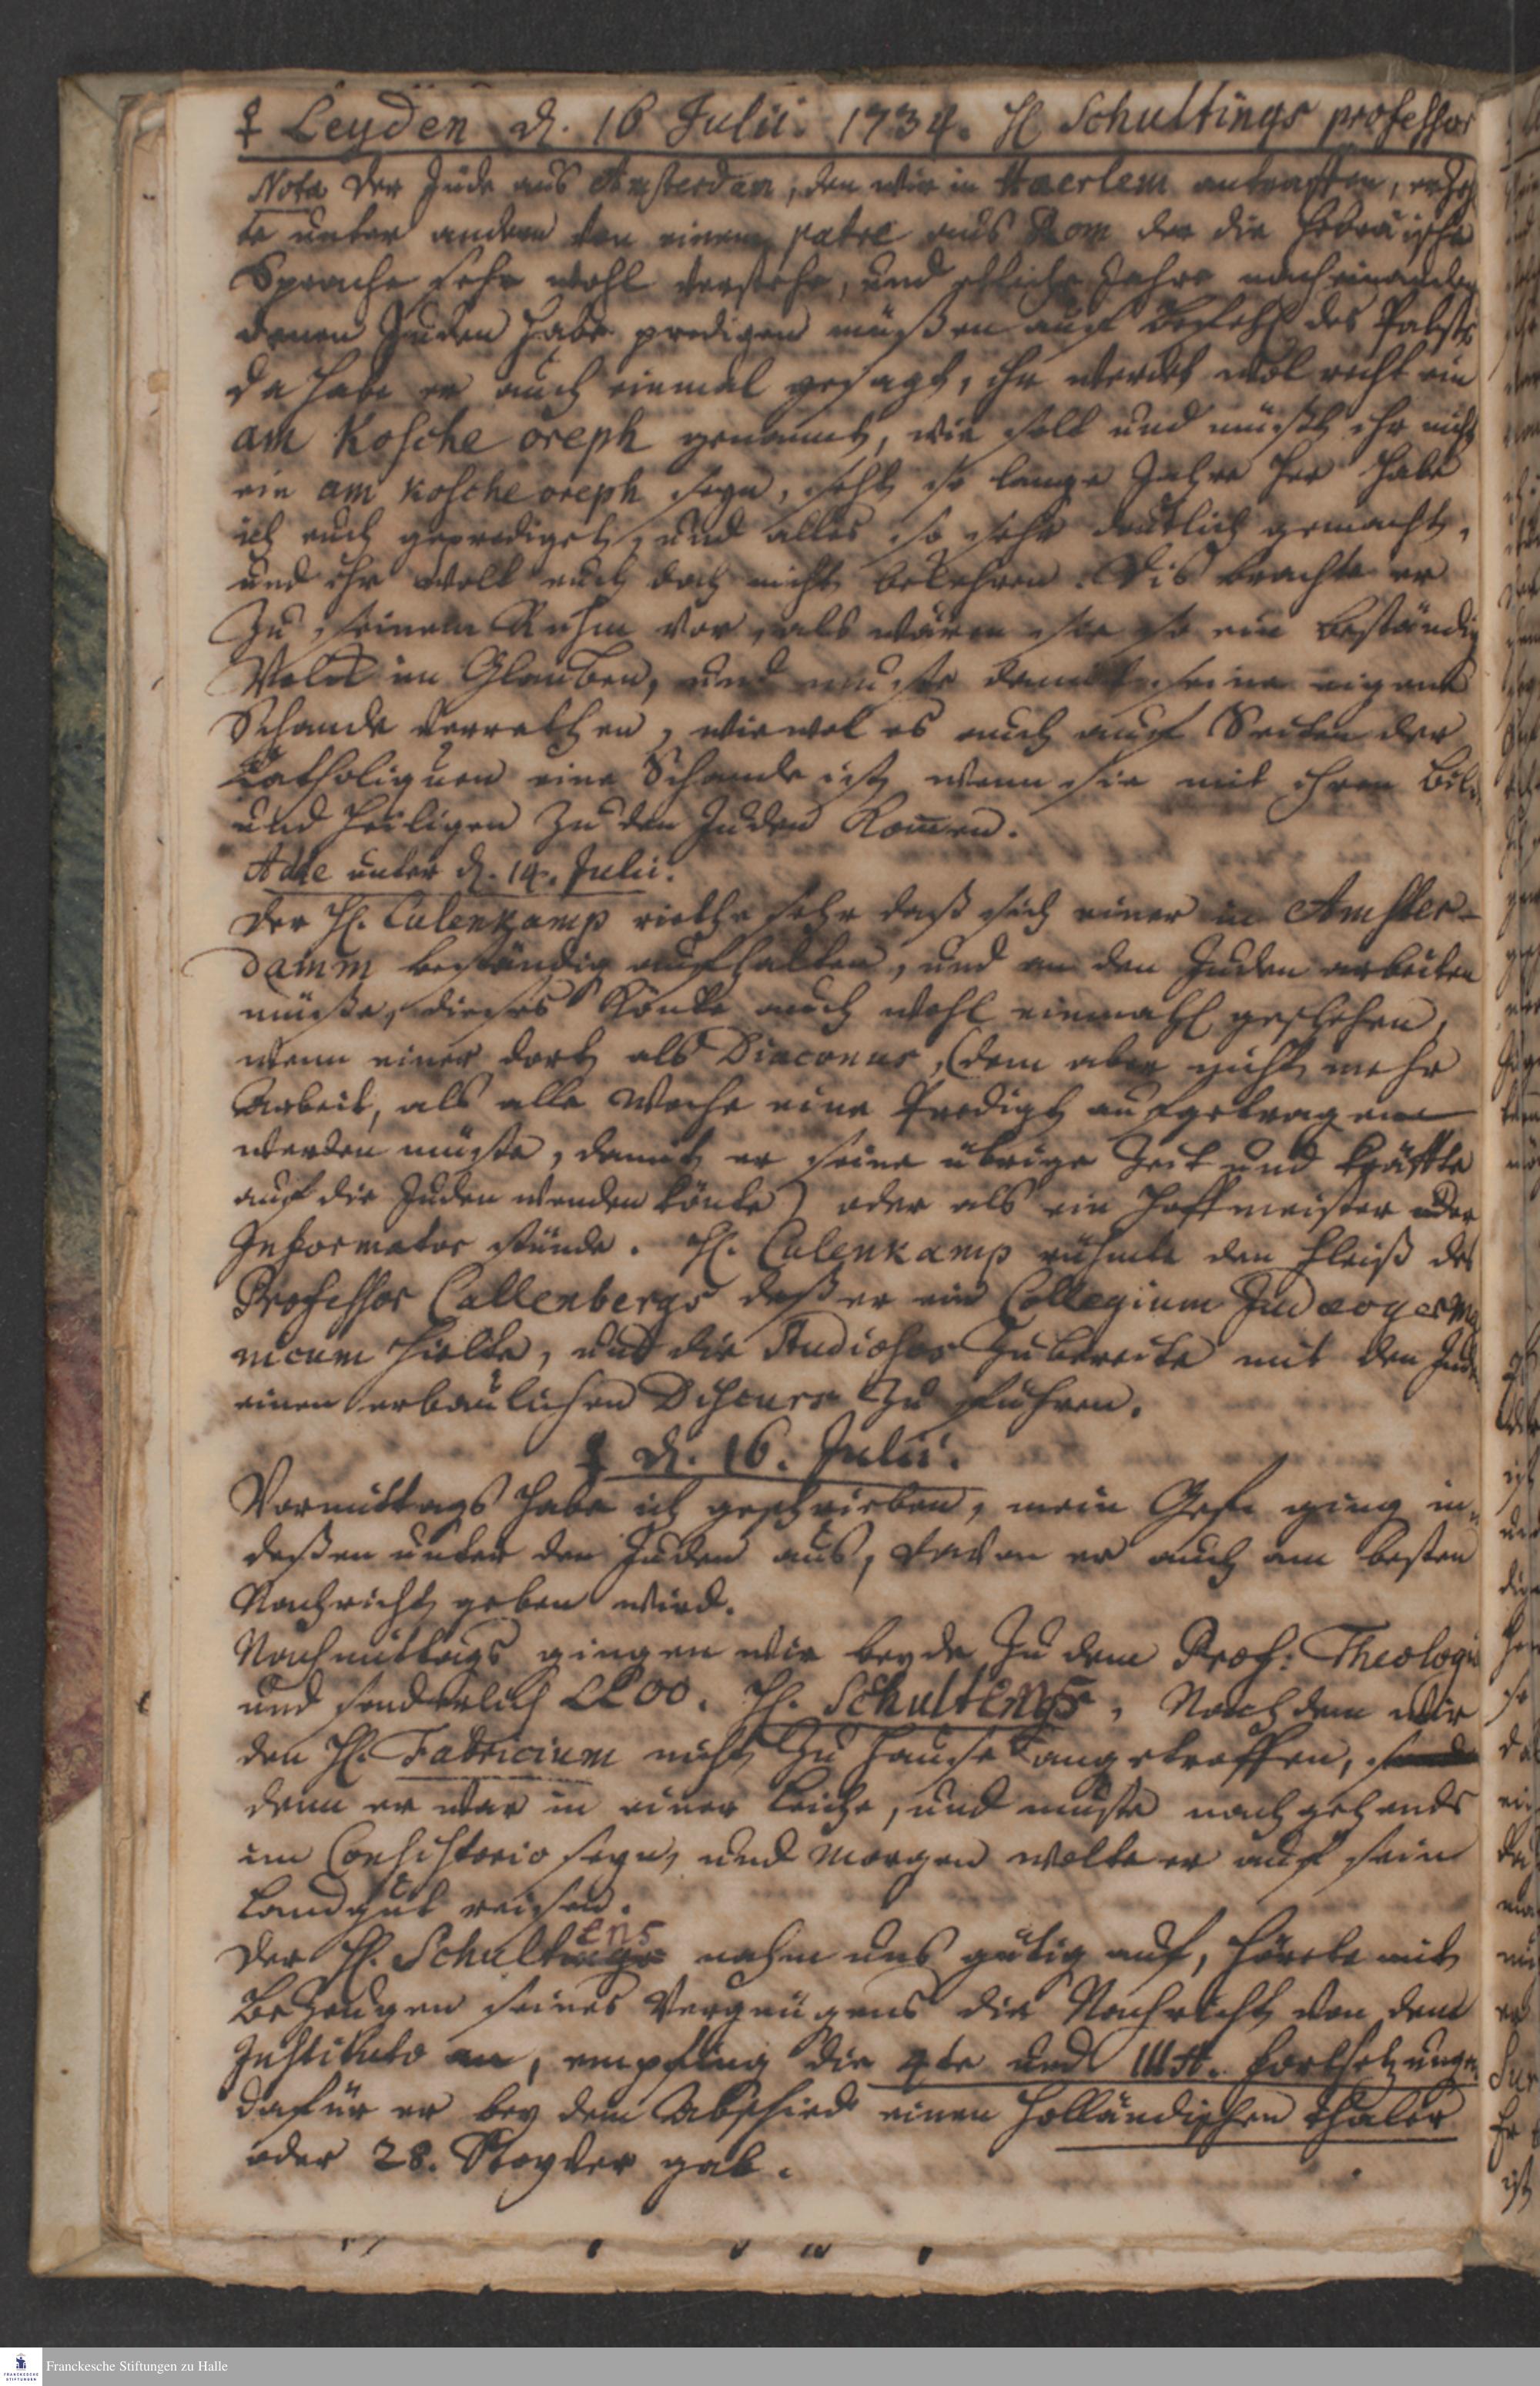 ♀ Leyden d. 16 Julii. 1734. H Schultings professor
Nota der Jude aus Amsterdam, den wir in Haerlem antraffen, erzehl
te unter andern von einem patre aus Rom der die Hebräische
Sprache sehr wohl verstehe, und etliche Jahre nacheinander
denen Juden habe predigen müßen auf Befehl des Pabsts
da habe er auch einmal gesagt, ihr werdet wol recht ein
am Kosche oreph genannt, wie solt und müßt ihr nicht
ein am kosche oreph seyn, seht so lange Jahre her habe
ich euch geprediget, und alles so sehr deutlich gemacht,
und ihr wolt euch doch nicht bekehren. Dis brachte er
zu seinem Ruhm vor, als wären sie so ein beständig
Volck im Glauben, und muste damit seine eigene
Schande verrathen, wiewol es auch auf Seiten der
Catholiquen eine Schande ist, wenn sie mit ihren Bil.
und Heiligen zu den Juden kom̄en.
Adde unter d. 14. Julii.
Der H. Culenkamp riethe sehr daß sich einer in Amster-
damm beständig aufhalten, und an den Juden arbeiten
müße, dieses könte auch wohl einmahl geschehen,
wenn einer dort als Diaconus, (dem aber nicht mehr
Arbeit, als alle Woche eine Predigt aufgetragen
werden müste, damit er seine übrige Zeit und Kräffte
auf die Juden wenden könte) oder als ein Hoffmeister oder
Informator stünde. H. Culenkamp rühmte den Fleiß des
Professor Callenbergs daß er ein Collegium Judæogerma
nicum hielte, und die Studiosos zubereite mit den Jude
einen erbaulichen Discurs zu führen.
♀ d. 16. Julii.
Vormittags habe ich geschrieben, mein Gefe ging in-
deßen unter den Juden aus, davon er auch am besten
Nachricht geben wird.
Nachmittags gingen wir beyde zu dem Prof: Theologiæ
und sonderlich LLOO. H. Schultens, Nachdem wir
den H. Fabricium nicht zu Hause angetroffen,
denn er war in einer Leiche, und muste nachgehends
im Consistorio seyn, und morgen wolte er auf sein
Landgut reisen.
ens
Der H. Schultings nahm uns gütig auf, hörete mit
Bezeugen seines Vergnügens die Nachricht von dem
Instituto an, empfing die 4te und IIIte. Fortsetzunge.
dafür er bey dem Abschied einen Holländischen Thaler
oder 28. Stüyver gab.
Franckesche Stiftungen zu Halle